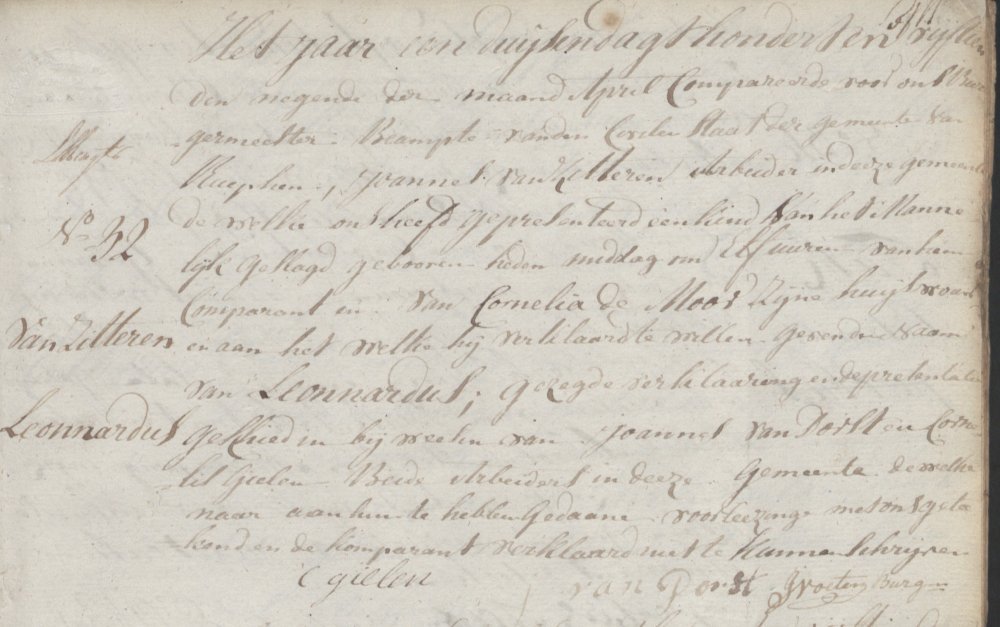 Het jaar een duijsend agt hondert en vijftien
den negende der maand April Compareerde voor ons Bur
germeester Beampte van den Civilen Staat der gemeente van
Rucphen, Joannes van Zitteren Arbeider in deeze gemeente
N° 32
de welke ons heeft gepresenteerd een kind van het Manne
lijk geslagt gebooren heden middag om Elf uuren van hem
Comparant en van Cornelia de Moor Zijne huijsvrouw
van Zitteren
en aan het welke hij verklaard te willen geven den Naam
van Leonnardus; gezegde verklaaring en depresentatie
Leonnardus
geschied in bij weesen van Joannes van Dorst en Corne
lis Gielen Beide Arbeiders in deeze Gemeente de welke
naar aan hun te hebben Gedaane voorleezinge met ons getee
kend en de komparant verklaard niet te kunnen schrijven
C gielen
J van Dorst